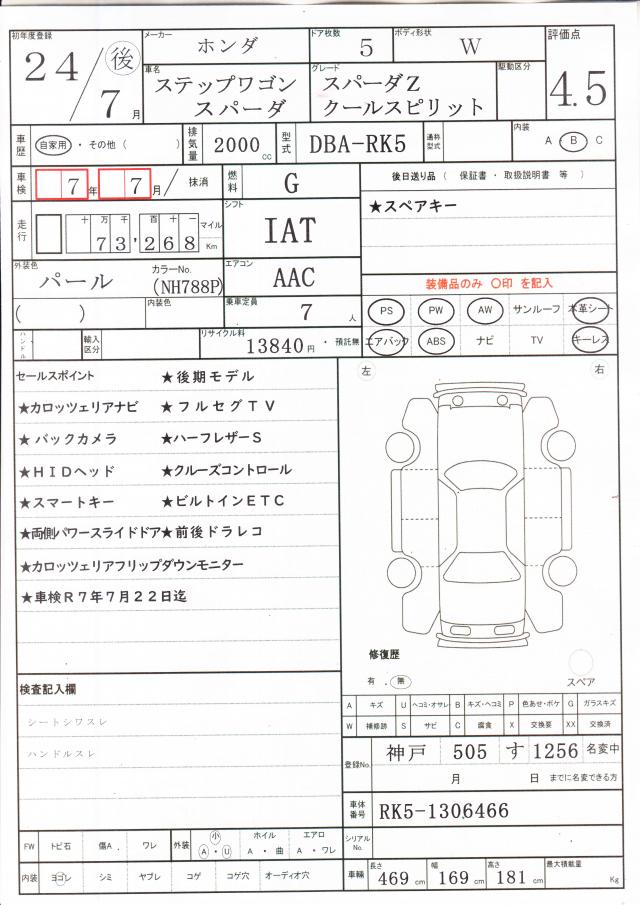 初年度登録 メーカー ホンダ ドア枚数 5 ボディ形状 W 評価点
24／後 7月
車名 ステップワゴン スパーダ グレード スパーダZ クールスピリット 駆動区分 4.5
車歴 自家用・その他（ ） 排気量 2000cc 型式 DBA-RK5 通称型式 内装 A B C
車検 7年 7月／抹消 燃料 G 後日送り品（ 保証書・取扱説明書 等 ）
走行 十万千百十一 73,268 マイル Km シフト IAT ★スペアキー
外装色 パール カラーNo. (NH788P) エアコン AAC 装備品のみ 〇印 を記入
( ) 内装色 乗車定員 7人 PS PW AW サンルーフ 本革シート
ハンドル 輸入区分 リサイクル料 13840円・預託無 エアバック ABS ナビ TV キーレス
セールスポイント ★後期モデル 左 右
★カロッツェリアナビ ★フルセグTV
★バックカメラ ★ハーフレザーS
★HIDヘッド ★クルーズコントロール
★スマートキー ★ビルトインETC
★両側パワースライドドア★前後ドラレコ
★カロッツェリアフリップダウンモニター
★車検R7年7月22日迄
修復歴
有 . 無 スペア
検査記入欄
シートシワスレ
ハンドルスレ
A キズ U ヘコミ・オサレ B キズ・ヘコミ P 色あせ・ボケ G ガラスキズ
W 補修跡 S サビ C 腐食 X 交換要 XX 交換済
登録No. 神戸 505 す 1256 名変中
月 日 までに名変できる方
車体番号 RK5-1306466
FW トビ石 傷A . ワレ 外装 小 A・U ホイル A・曲 エアロ A・ワレ シリアルNo.
内装 ヨゴレ シミ ヤブレ コゲ コゲ穴 オーディオ穴 車輛 長さ 469cm 幅 169cm 高さ 181cm 最大積載量 Kg